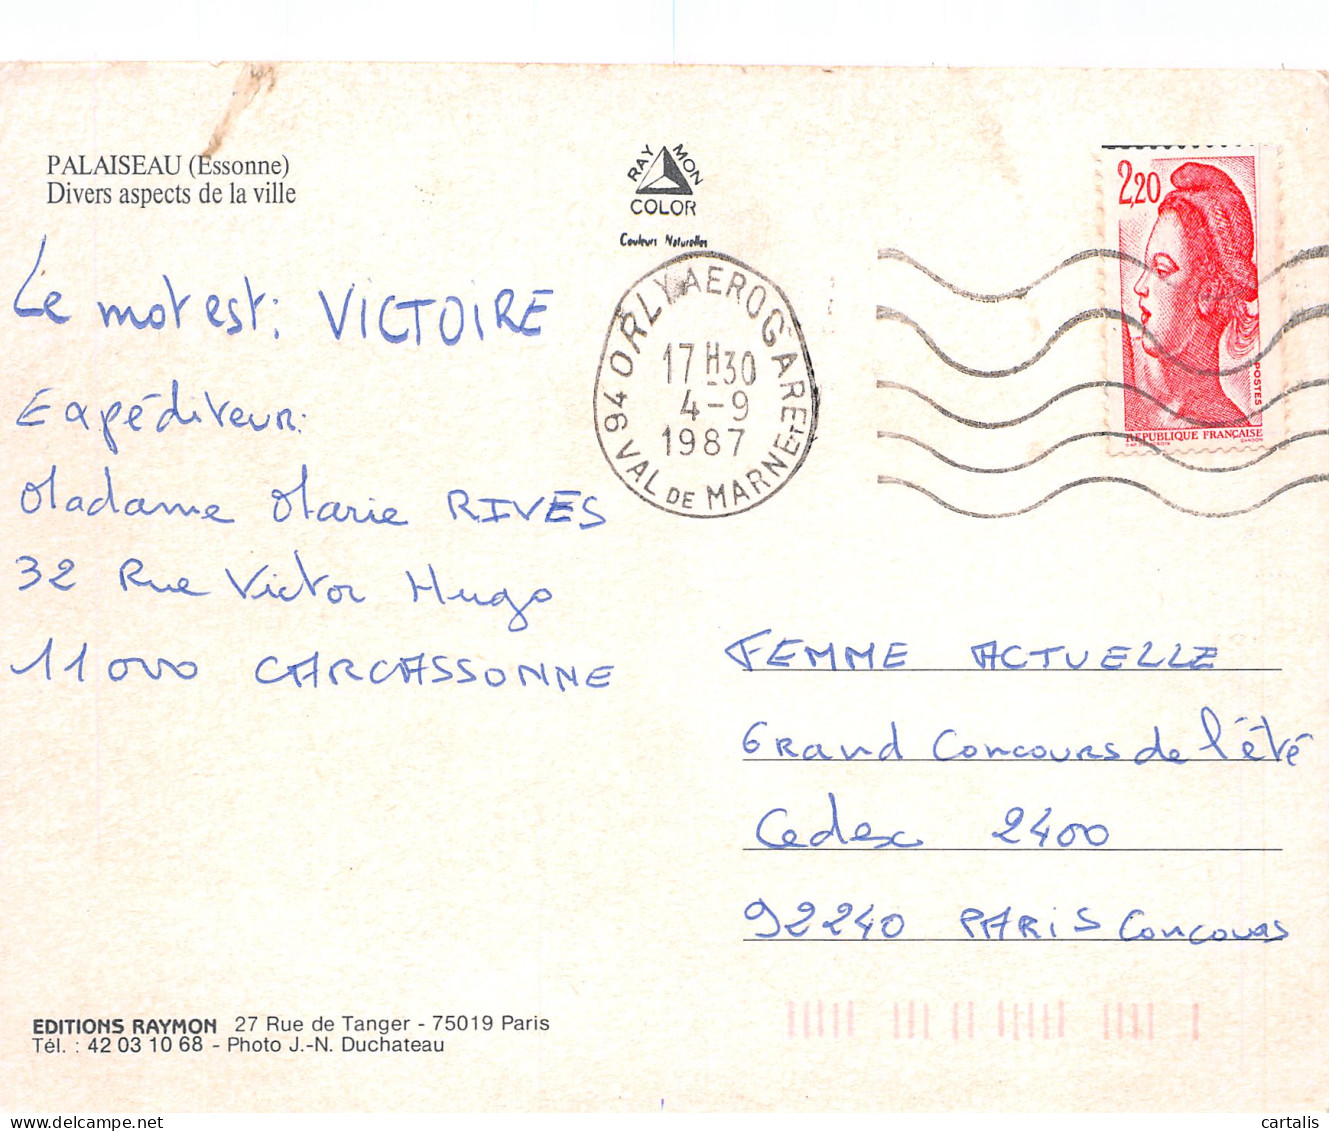 PALAISEAU (Essonne)
Divers aspects de la ville
RAYMON
COLOR
Couleurs Naturelles
2,20
POSTES
REPUBLIQUE FRANÇAISE
94 ORLY AEROGARE
17 H 30
4-9
1987
VAL DE MARNE
Le mot est: VICTOIRE
Expéditeur:
Madame Marie RIVES
32 Rue Victor Hugo
11000 CARCASSONNE
FEMME ACTUELLE
Grand Concours de l'été
Cedex 2400
92240 PARIS Concours
EDITIONS RAYMON 27 Rue de Tanger - 75019 Paris
Tél. : 42 03 10 68 - Photo J.-N. Duchateau
cartalis